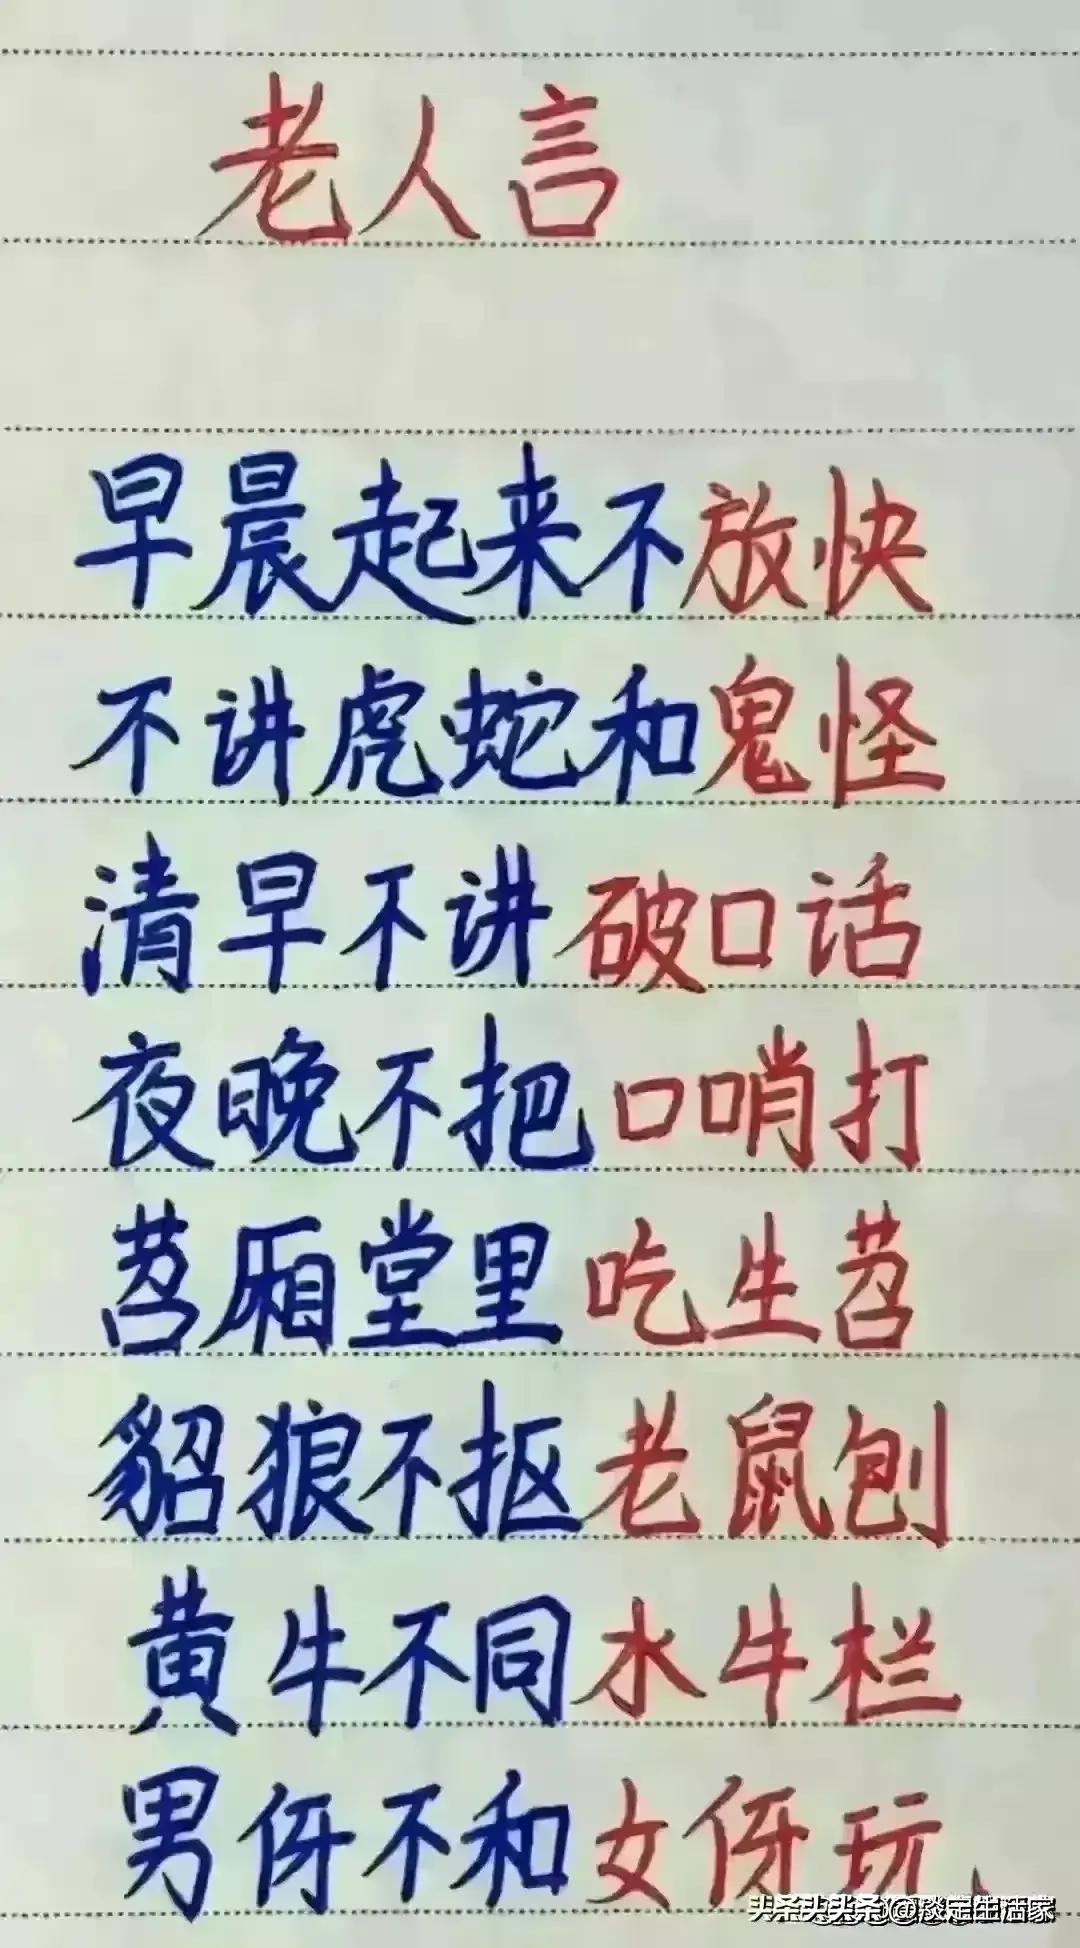 老人言
早晨起来不放快
不讲虎蛇和鬼怪
清早不讲破口话
夜晚不把口哨打
苕厢堂里吃生苕
貂狼不抠老鼠刨
黄牛不同水牛栏
男伢不和女伢玩、
头条 @淡定生活家